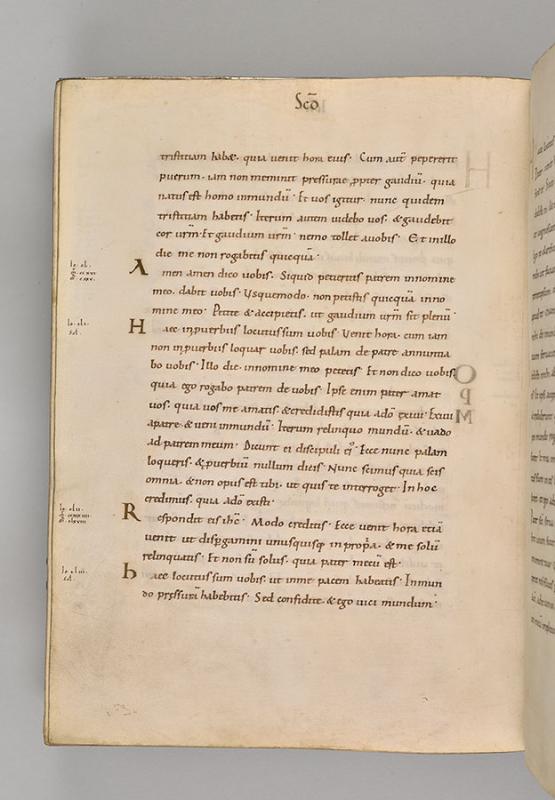 Scđ
tristitiam habæ· quia uenit hora eius· Cum aut̄ pepererit
puerum· iam non meminit pressurae ꝓpter gaudiū· quia
natus est homo inmundū· Et uos igitur· nunc quidem
tristitiam habetis· Iterum autem uidebo uos· & gaudebit
cor ur̄m· Et gaudium ur̄m· nemo tollet auobis· Et inillo
die me non rogabitis quicquā·
Amen amen dico uobis· Siquid petieritis patrem innomine
meo· dabit uobis· Usquemodo· non petistis quicquā inno
mine meo· Petite & accipietis· ut gaudium ur̄m sit plenū·
Haec inꝓuerbiis locutussum uobis· Uenit hora· cum iam
non inꝓuerbiis loquar uobis· sed palam de patre annuntia
bo uobis· Illo die· innomine meo petetis· Et non dico uobis·
quia ego rogabo patrem de uobis· Ipse enim pater amat
uos· quia uos me amatis· & credidistis quia adō exiui· Exiui
apatre· & ueni inmundū· Iterum relinquo mundū· & uado
ad patrem meum· Dicunt ei discipuli ei'· Ecce nunc palam
loqueris· & ꝓuerbiū nullum dicis· Nunc scimus quia scis
omnia· & non opus est tibi· ut quis te interroget· In hoc
credimus· quia adō existi·
Respondit eis ihc̄· Modo creditis· Ecce uenit hora & iā
uenit· ut dispergamini unusquisq; in propria· & me solū
relinquatis· Et non sū solus· quia pater mecū est·
haec locutussum uobis· ut inme pacem habeatis· Inmun
do pressurā habebitis· Sed confidite· & ego uici mundum·